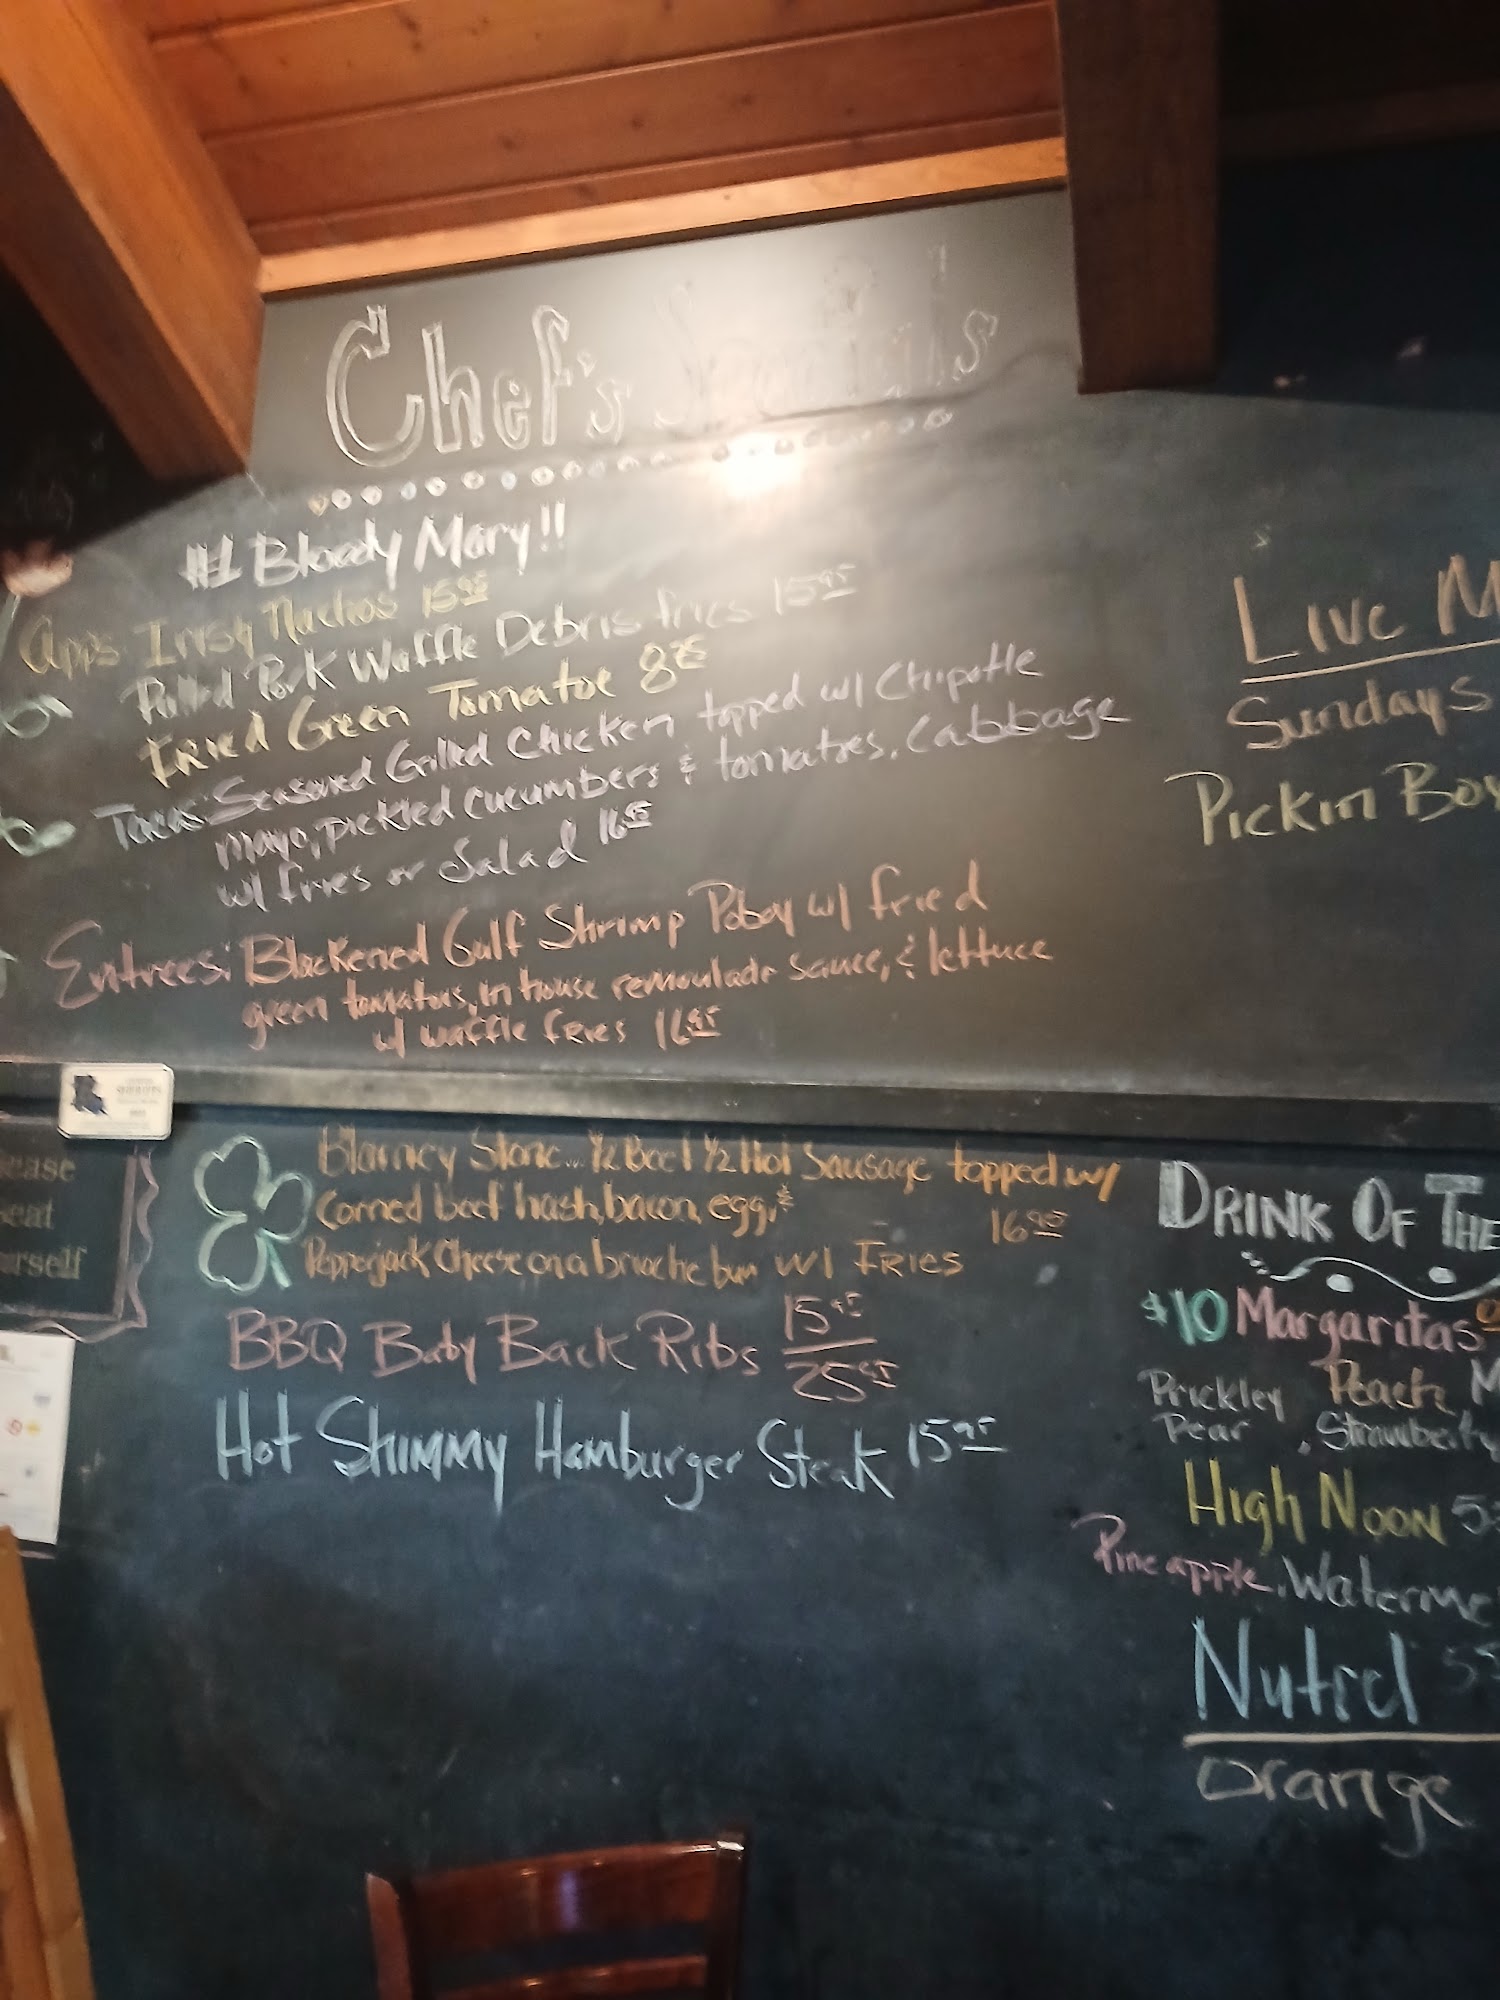 Chef's Specials
#1 Bloody Mary!!
Apps: Irish Nachos 15.95
Pulled Pork Waffle Debris fries 15.95
Fried Green Tomatoe 8.75
Tacos: Seasoned Grilled Chicken topped w/ Chipotle
mayo, pickled cucumbers & tomatoes, Cabbage
w/ fries or Salad 16.95
Entrees: Blackened Gulf Shrimp Poboy w/ fried
green tomatoes, in house remoulade sauce, & lettuce
w/ waffle fries 16.95
Blarney Stone... 1/2 Beef 1/2 Hot Sausage topped w/
Corned beef hash, bacon, egg, &
16.95
Pepperjack Cheese on a brioche bun w/ Fries
BBQ Baby Back Ribs 15.95
25.95
Hot Shimmy Hamburger Steak 15.95
Live M
Sundays
Pickin Boy
Drink Of The
$10 Margaritas
Prickley Peach, M
Pear , Strawberry
High Noon 5
Pineapple, Waterme
Nutrl 5
Orange
ease
eat
urself